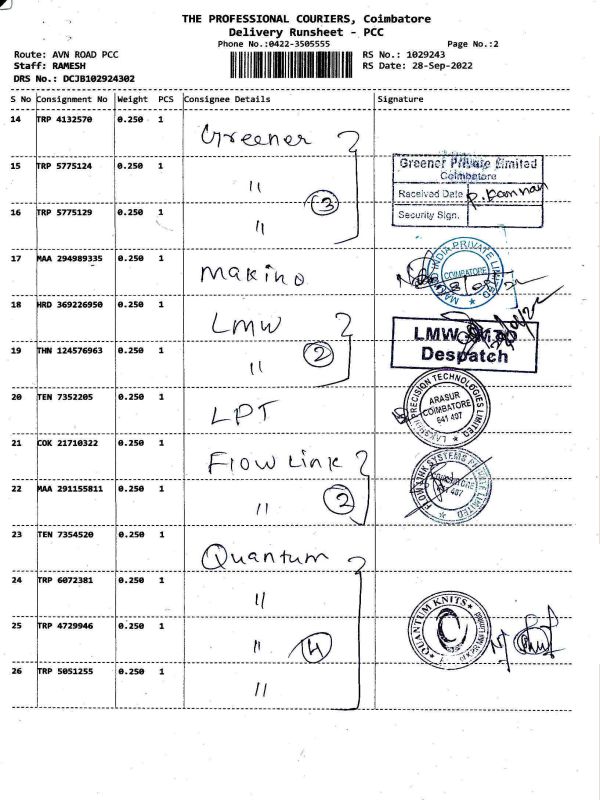 THE PROFESSIONAL COURIERS, Coimbatore
Delivery Runsheet - PCC
Phone No.:0422-3505555
Page No.:2
Route: AVN ROAD PCC
RS No.: 1029243
Staff: RAMESH
RS Date: 28-Sep-2022
DRS No.: DCJB102924302
S No Consignment No Weight PCS Consignee Details Signature
14 TRP 4132570 0.250 1 Greener
15 TRP 5775124 0.250 1 "
3
16 TRP 5775129 0.250 1 "
Greener Private Limited
Coimbatore
Received Date
R. Kannan
Security Sign.
17 MAA 294989335 0.250 1 Makino
MAKINO INDIA PRIVATE LIMITED
COIMBATORE
18 HRD 369226950 0.250 1 LMW
2
19 THN 124576963 0.250 1 "
LMW
Despatch
20 TEN 7352205 0.250 1 LPT
LAKSHMI PRECISION TECHNOLOGIES LIMITED
ARASUR
COIMBATORE
641 407
21 COK 21710322 0.250 1 Flow Link
22 MAA 291155811 0.250 1 "
2
FLOW LINK SYSTEMS PRIVATE LIMITED
COIMBATORE
641 407
23 TEN 7354520 0.250 1 Quantum
24 TRP 6072381 0.250 1 "
25 TRP 4729946 0.250 1 "
4
26 TRP 5051255 0.250 1 "
QUANTUM KNITS